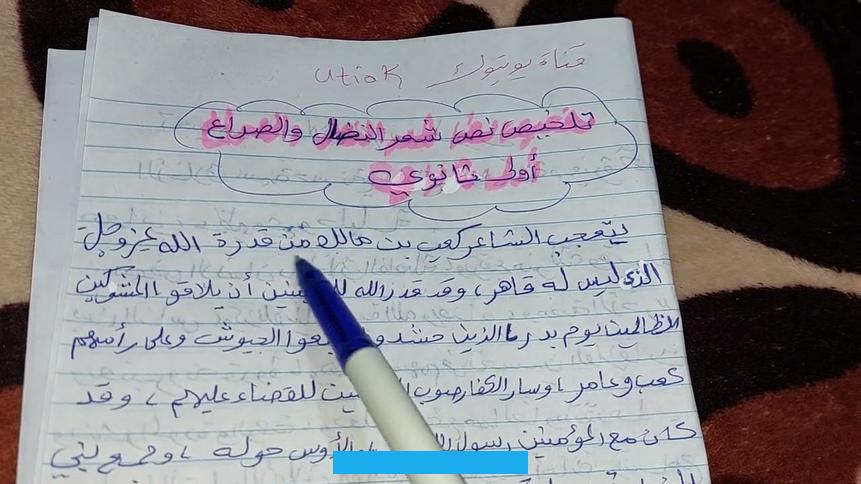 قناة يوتيوب utiok
تلخيص نص شعر النضال والصراع
أولى ثانوي
يتعجب الشاعر كعب بن مالك من قدرة الله عز وجل
الذي ليس له قاهر، وقد قدر الله أن يلاقوا المشركين
الظالمين يوم بدر، الذين حشدوا الجيوش وعلى رأسهم
كعب وعامر، وسار الكفار صوب للقضاء عليهم، وقد
كان مع المؤمنين رسول والأوس حوله، وجمع بني